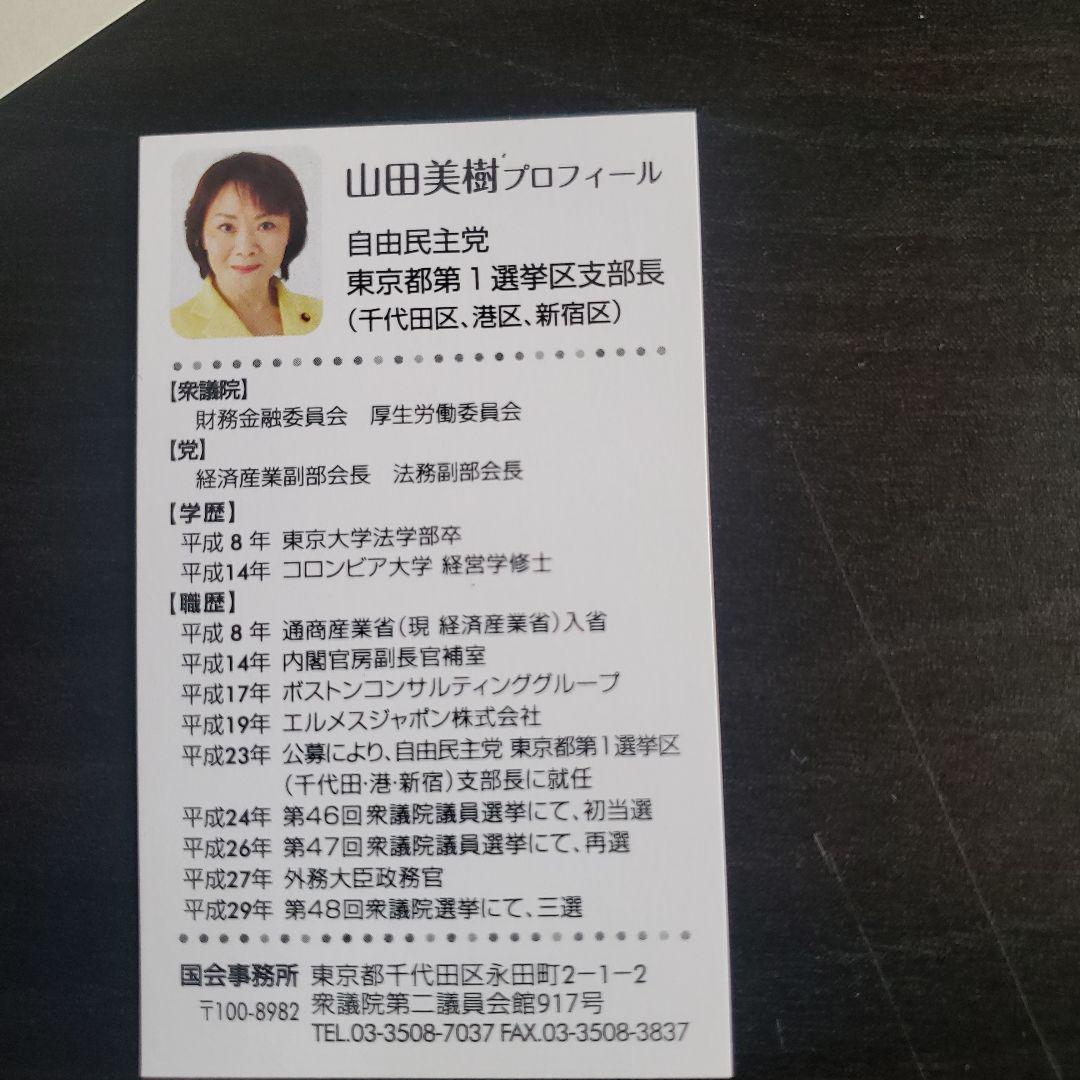 山田美樹プロフィール
自由民主党
東京都第1選挙区支部長
(千代田区、港区、新宿区)
【衆議院】
財務金融委員会 厚生労働委員会
【党】
経済産業副部会長 法務副部会長
【学歴】
平成8年 東京大学法学部卒
平成14年 コロンビア大学 経営学修士
【職歴】
平成8年 通商産業省(現 経済産業省)入省
平成14年 内閣官房副長官補室
平成17年 ボストンコンサルティンググループ
平成19年 エルメスジャポン株式会社
平成23年 公募により、自由民主党 東京都第1選挙区
(千代田・港・新宿)支部長に就任
平成24年 第46回衆議院議員選挙にて、初当選
平成26年 第47回衆議院議員選挙にて、再選
平成27年 外務大臣政務官
平成29年 第48回衆議院選挙にて、三選
国会事務所 東京都千代田区永田町2-1-2
〒100-8982 衆議院第二議員会館917号
TEL.03-3508-7037 FAX.03-3508-3837